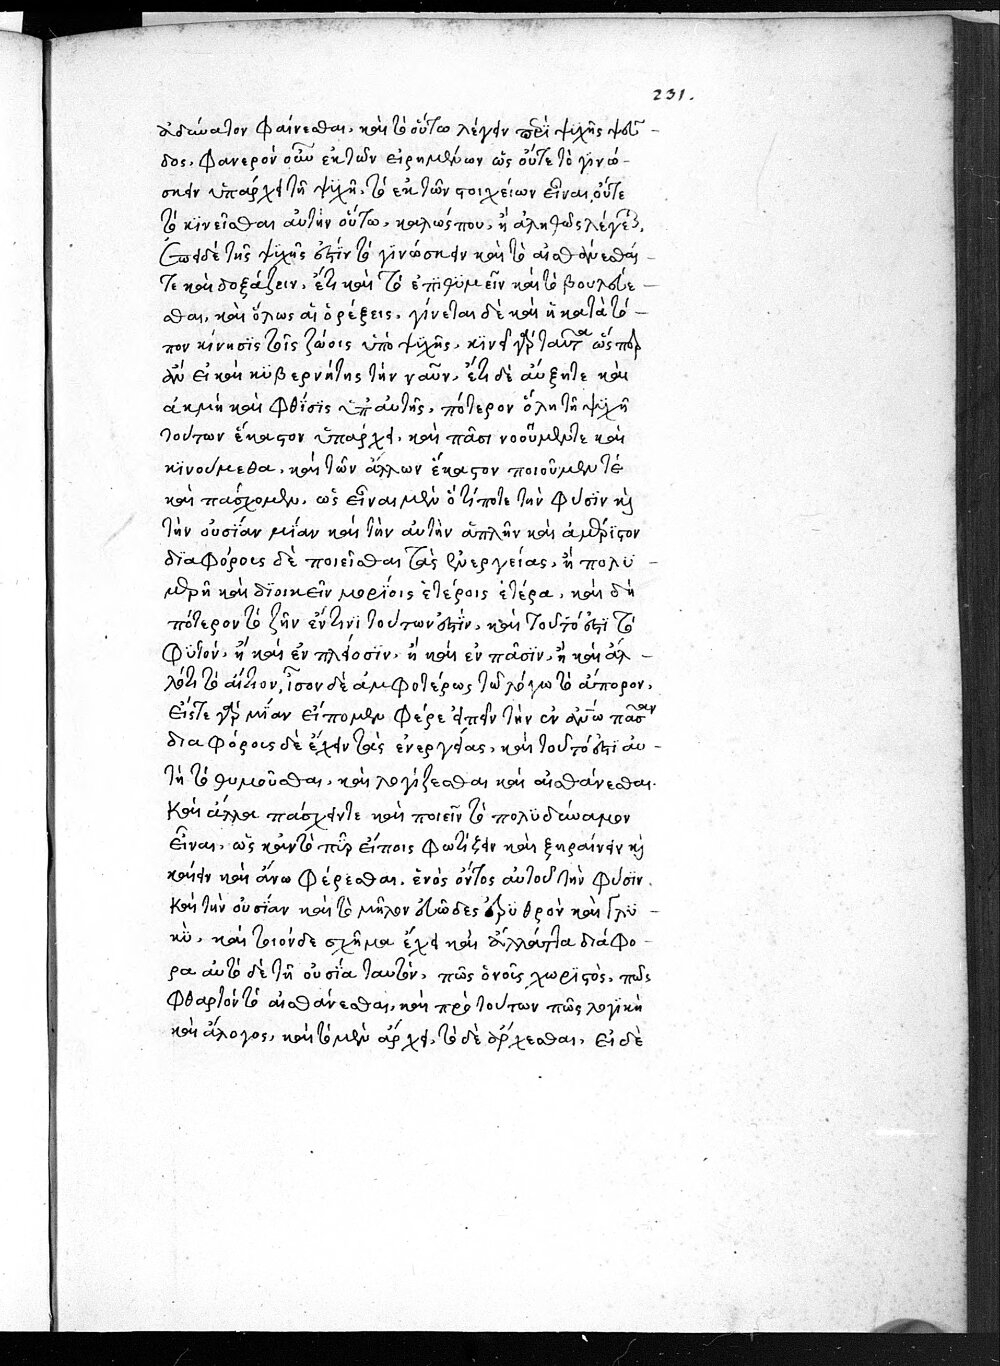 231.
ἀδύνατον φαίνεσθαι, καὶ τὸ οὕτω λέγειν περὶ ψυχῆς ψεῦ-
δος, φανερὸν οὖν ἐκ τῶν εἰρημένων ὡς οὔτε τὸ γινώ-
σκειν ὑπάρχει τῇ ψυχῇ, τὸ ἐκ τῶν στοιχείων εἶναι, οὔτε
τὸ κινεῖσθαι αὐτὴν οὕτω, καλῶς που, ἢ ἀληθῶς λέγεται,
Ἐπεὶ δὲ τῆς ψυχῆς ἐστὶν τὸ γινώσκειν καὶ τὸ αἰσθάνεσθαί-
τε καὶ δοξάζειν, ἔτι καὶ τὸ ἐπιθυμεῖν καὶ τὸ βουλεύε-
σθαι, καὶ ὅλως αἱ ὀρέξεις, γίνεται δὲ καὶ ἡ κατὰ τό-
πον κίνησις τοῖς ζώοις ὑπὸ ψυχῆς, κινεῖ γὰρ ταῦτα ὥσπερ
ἂν εἰ καὶ κυβερνήτης τὴν ναῦν, ἔτι δὲ αὔξητε καὶ
ἀκμὴ καὶ φθίσις ὑπ αὐτῆς, πότερον ὅλη τῇ ψυχῇ
τούτων ἕκαστον ὑπάρχει, καὶ πᾶσι νοοῦμέντε καὶ
κινούμεθα, καὶ τῶν ἄλλων ἕκαστον ποιοῦμέν τέ
καὶ πάσχομεν, ὡς εἶναι μὲν ὅτί ποτε τὴν φύσιν καὶ
τὴν οὐσίαν μίαν καὶ τὴν αὐτὴν ἁπλῆν καὶ ἀμέριστον
διαφόροις δὲ ποιεῖσθαι τὰς ἐνεργείας, ἢ πολυ-
μερῆ καὶ διοικεῖν μορίοις ἑτέροις ἑτέρα, καὶ δὴ
πότερον τὸ ζῆν ἔν τινι τούτων ἐστίν, καὶ τοῦτό ἐστι τὸ
φυτόν, ἢ καὶ ἐν πλείοσιν, ἢ καὶ ἐν πᾶσιν, ἢ καὶ ἄλ-
λό τι τὸ αἴτιον, ἶσον δὲ ἀμφοτέρως τῷ λόγῳ τὸ ἄπορον,
εἴτε γὰρ μίαν εἴποιμεν φέρε εἰπεῖν τὴν ἐν ἀνῳ πᾶσαν
διαφόροις δὲ ἔχειν τὰς ἐνεργείας, καὶ τοῦτό ἐστι αὐ-
τῇ τὸ θυμοῦσθαι, καὶ λογίζεσθαι καὶ αἰσθάνεσθαι.
Καὶ ἄλλα πάσχειντε καὶ ποιεῖν τὸ πολυδύναμον
εἶναι, ὡς κἂν τὸ πῦρ εἴποις φωτίζειν καὶ ξηραίνειν καὶ
καίειν καὶ ἄνω φέρεσθαι, ἑνὸς ὄντος αὐτοῦ τὴν φύσιν.
Καὶ τὴν οὐσίαν καὶ τὸ μῆλον εὐῶδες ἐρυθρὸν καὶ γλυ-
κὺ, καὶ τοιόνδε σχῆμα ἔχει καὶ ἄλλάττα διάφο-
ρα αὐτὸ δὲ τῇ οὐσία ταυτόν, πῶς ὁ νοῦς χωριστὸς, πῶς
φθαρτόν τὸ αἰσθάνεσθαι, καὶ πρὸ τούτων πῶς λογικὴ
καὶ ἄλογος, καὶ τὸ μὲν ἄρχει, τὸ δὲ ἄρχεσθαι, Εἰ δὲ